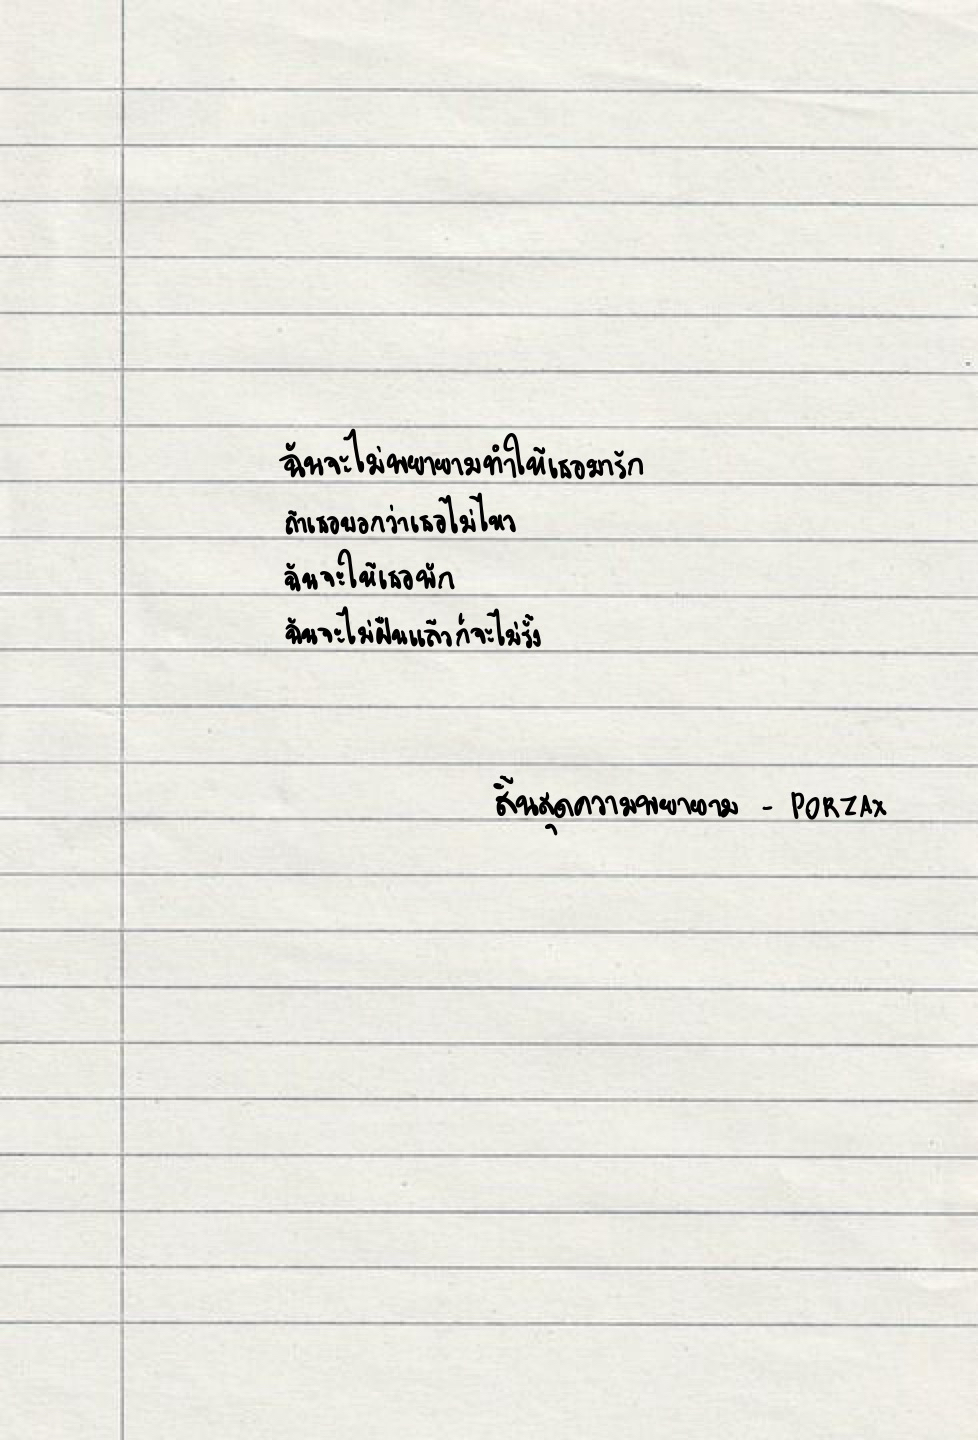 ฉันจะไม่พยายามทำให้เธอมารัก
ถ้าเธอบอกว่าเธอไม่ไหว
ฉันจะให้เธอพัก
ฉันจะไม่ฝืนแล้วก็จะไม่รั้ง
สิ้นสุดความพยายาม - PORZAX